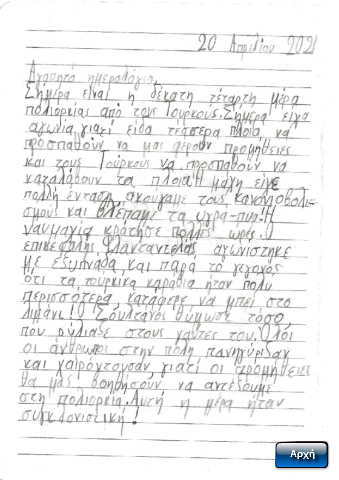 20 Απριλίου 2021
Αγαπητό ημερολόγιο,
Σήμερα είναι η δέκατη τέταρτη μέρα
πολιορκίας από τους Τούρκους. Σήμερα είχα
αγωνία γιατί είδα τέσσερα πλοία, να
προσπαθούν να μας φέρουν προμήθειες
και τους Τούρκους να προσπαθούν να
καταλάβουν τα πλοία. Η μάχη είχε
πολλή ένταση ακούγαμε τους κανονιοβολι-
σμούς και βλέπαμε τα υγρα-πυρ! Η
ναυμαχία κράτησε πολλές ώρες. Ο
επικεφαλής Φλαντανελάς, αγωνίστηκε
με εξυπνάδα και παρά το γεγονός
ότι τα τούρκικα καράβια ήταν πολύ
περισσότερα, κατάφερε να μπει στο
λιμάνι! Ο Σουλτάνος θύμωσε τόσο
που ούρλιαξε στους ναύτες του. Όλοι
οι άνθρωποι στην πόλη πανηγύριζαν
και χαιρόντουσαν γιατί οι προμήθειες
θα μας βοηθήσουν να αντέξουμε
στη πολιορκία. Αυτή η μέρα ήταν
συγκλονιστική!
Αρχή